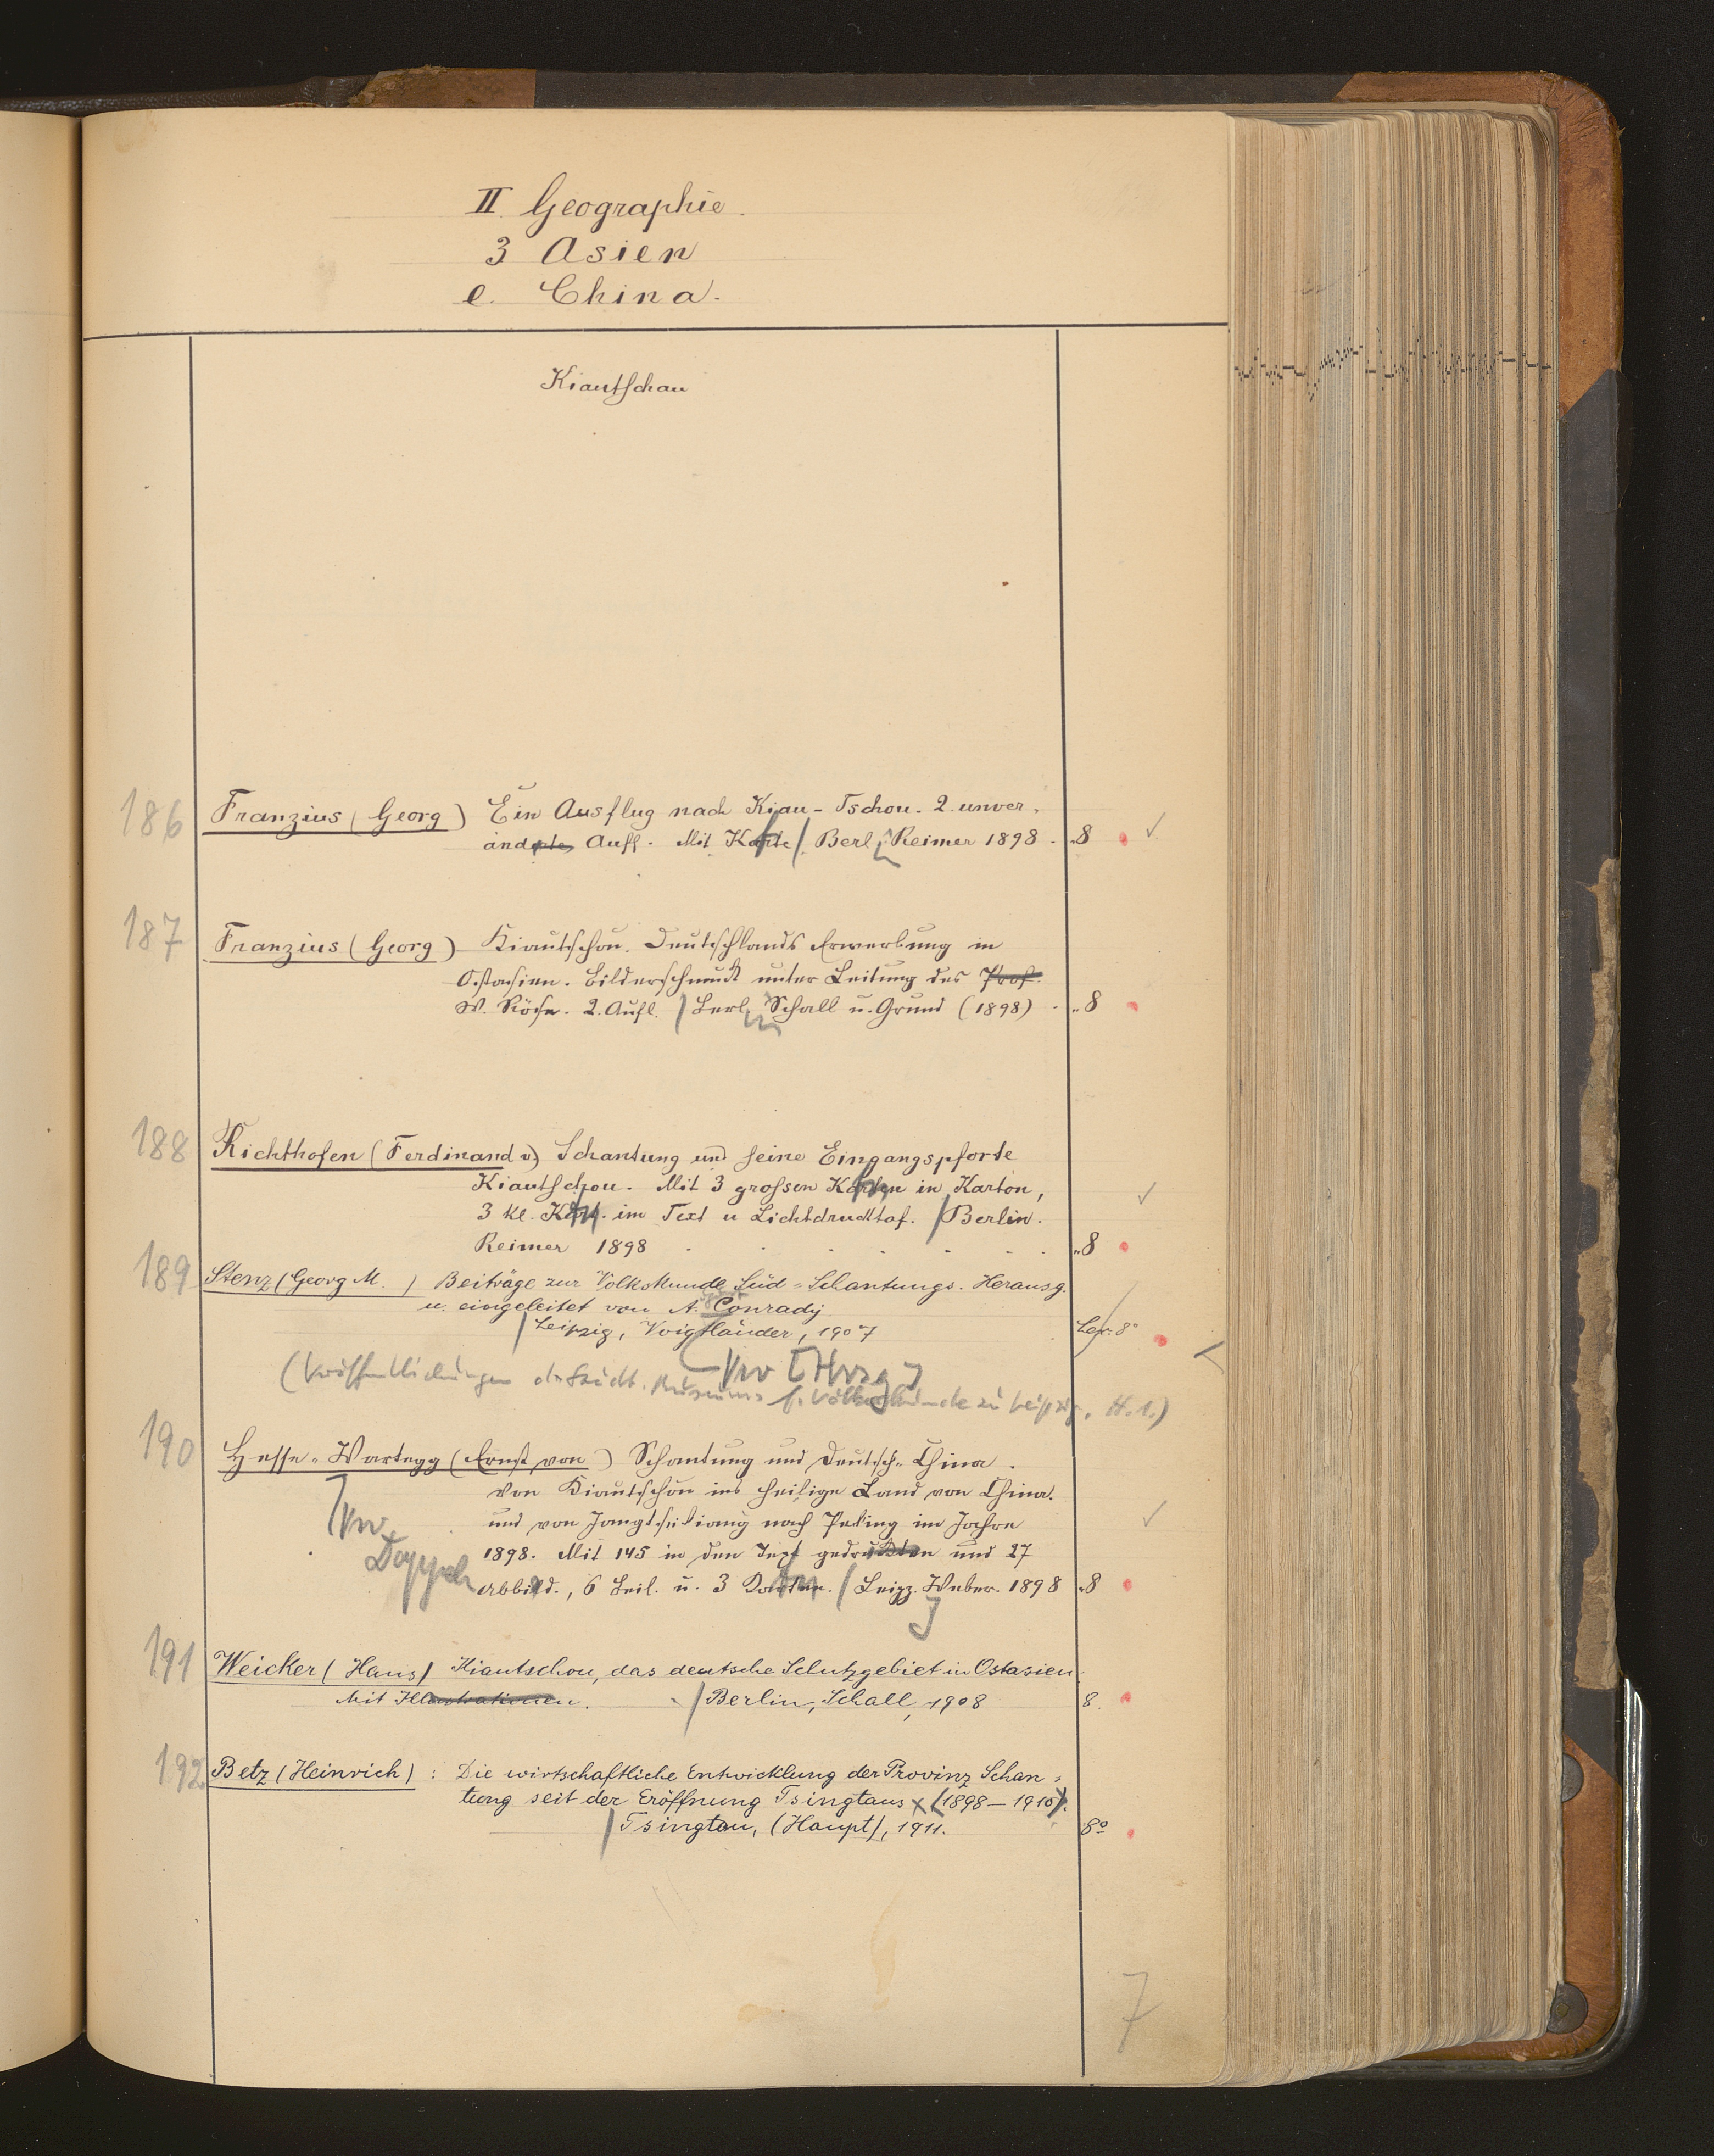 II. Geographie.
3 Asien
e. China.
Kiautschau
186 Franzius (Georg) Ein Ausflug nach Kiau-Tschou. 2. unver-
änderte Aufl. Mit Karte / Berl. Reimer 1898. 8
187 Franzius (Georg) Kiautschou. Deutschlands Erwerbung in
Ostasien. Bilderschmuck unter Leitung des Prof.
W. 2. Aufl. / Berl. Schall u. Grund (1898) 8
188 Richthofen (Ferdinand v.) Schantung und seine Eingangspforte
Kiautschou. Mit 3 grossen Karten in Karton,
3 kl. Kart. im Text u Lichtdrucktaf. / Berlin.
Reimer 1898 8
189 Stenz (Georg M. ) Beiträge zur Volkskunde Süd-Schantungs. Herausg.
u. eingeleitet von A. Conrady
/ Leipzig, Voigtländer, 1907 Lex. 8°
Vw [Hrsg]
(Veröffentlichungen d. Städt. Museums f. Völkerkunde zu Leipzig, H. 1.)
190 Hesse-Wartegg (Ernst von) Schantung und Deutsch-China.
Von Kiautschou ins heilige Land von China.
und von Jangtsekiang nach Peking im Jahre
[Vw.
1898. Mit 145 in den Text gedruckten und 27
Doppel
Abbild., 6 Beil. u. 3 Karten. / Leipz. Weber. 1898 8
191 Weicker (Hans) Kiautschou, das deutsche Schutzgebiet in Ostasien.
Mit Illustrationen. / Berlin, Schall, 1908 8.
192 Betz (Heinrich) : Die wirtschaftliche Entwicklung der Provinz Schan-
tung seit der Eröffnung Tsingtaus (1898–1910).
/ Tsingtau, (Haupt), 1911. 8°
7